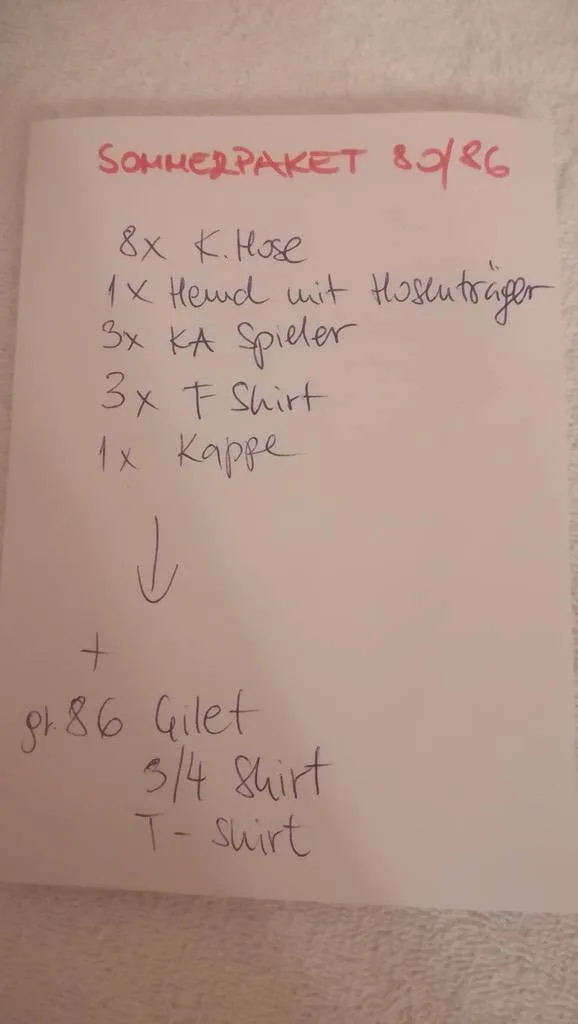 SOMMERPAKET 80/86
8x K. Hose
1x Hemd mit Hosenträger
3x KA Spieler
3x T Shirt
1x Kappe
+
gr. 86 Gilet
3/4 Shirt
T-Shirt